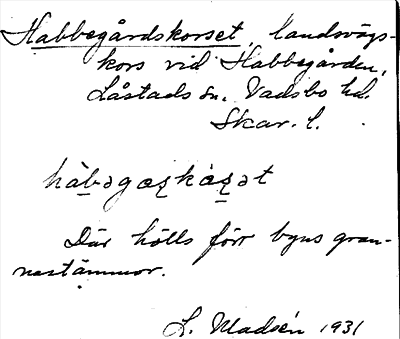 Habbegårdskorset, landsvägs-
kors vid Habbegården,
Låstads sn. Vadsbo hd.
Skar. l.
hàb̠əgaʂkàʂət
Där hölls förr byns gran-
nestämmor.
L. Madsén 1931